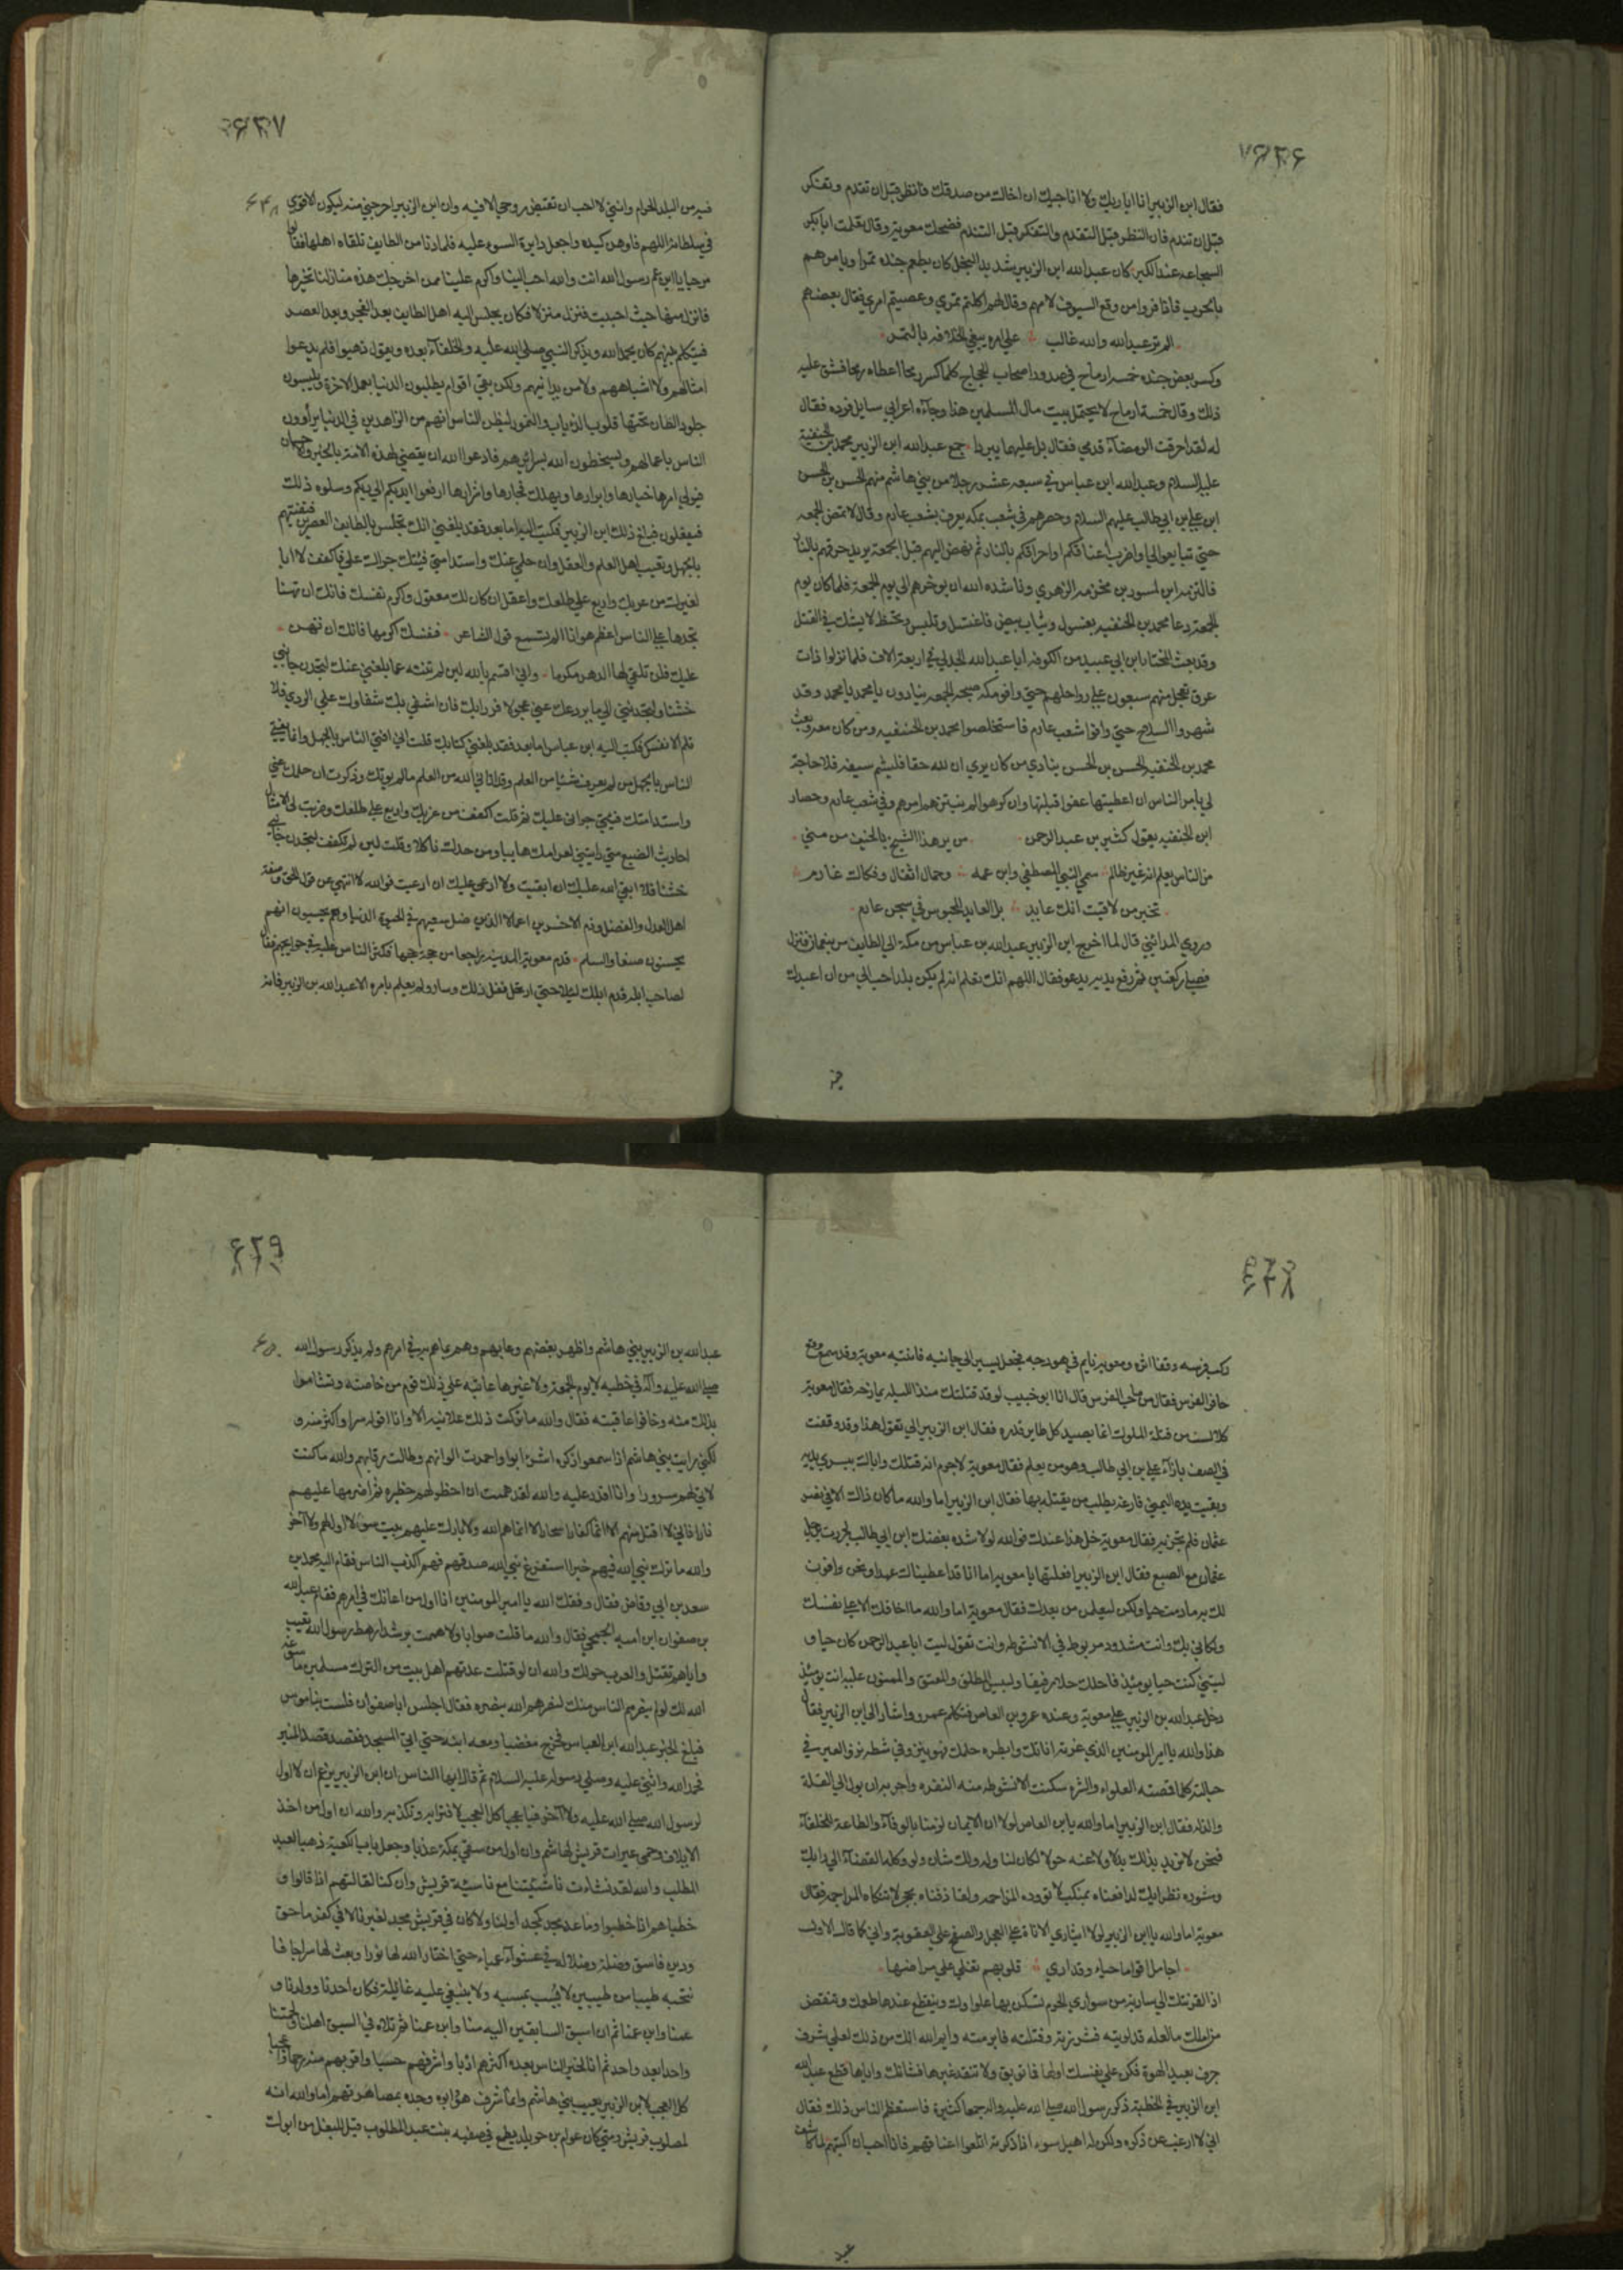 ٤٢٦
فقال ابن الزبير انا اياريك ولا اناجيك ان اخالك من صدقك فانظر قبل ان تقدم وتفكر
قبل ان تندم فان النظر قبل التقدم والتفكر قبل التندم فضحك معوية وقال تعلمت ابا بكر
السجاعه عند الكبر كان عبدالله ابن الزبير شديد البخل كان يطعم جنده تمرا ويامرهم
بالحرب فاذا فروا من وقع السيوف لامهم وقال لهم اكلتم تمري وعصيتم امري فقال بعضهم
الم تر عبدالله والله غالب على امره يبغي الخلافه بالتمر
وكسر بعض جنده خمسه ارماح في صدور اصحاب الحجاج كلما كسر رمحا اعطاه رمحا فشق عليه
ذلك وقال خمسة ارماح لا يحتمل بيت مال المسلمين هذا وجاءه اعرابي سايل فرده فقال
له لقد احرقت الرمضاء قدمي فقال بل عليهما يبردا جمع عبدالله ابن الزبير محمد بن الحنفية
عليه السلام وعبدالله ابن عباس في سبعه عشر رجلا من بني هاشم منهم الحسن بن الحسن
ابن علي بن ابي طالب عليهم السلام وحصرهم في شعب بمكه يعرف بشعب عارم وقال لا تمضي الجمعه
حتى تبايعوا لي او اضرب اعناقكم او احرقكم بالنار ثم نهض اليهم قبل الجمعة يريد حرقهم بالنار
فالتزمه ابن لمسور بن مخزمه الزهري وناشده الله ان يوخرهم الى يوم الجمعة فلما كان يوم
الجمعة دعا محمد بن الحنفيه بغسول وثياب بيض فاغتسل وتلبس وتحنط لا يشك في القتل
وقد بعث المختار ابن ابي عبيد من الكوفه ابا عبدالله الجدلي في اربعة الاف فلما نزلوا ذات
عرق تعجل منهم سبعون على رواحلهم حتى وافو مكه صبيحة الجمعه ينادون يا محمد يا محمد وقد
شهروا السلاح حتى وافوا شعب عارم فاستخلصوا محمد بن الحنفيه ومن كان معه وبعث
محمد بن الحنفيه الحسن بن الحسن ينادي من كان يرى ان لله حقا فليشم سيفه فلا حاجة
لي بامر الناس ان اعطيتها عفوا قبلتها وان كرهوا لم نبتزهم امرهم وفي شعب عارم وحصار
ابن الحنفيه يقول كثير بن عبد الرحمن من ير هذا الشيخ بالخيف من منى
من الناس يعلم انه غير ظالم سمي النبي المصطفى وابن عمه وحمال اثقال وفكاك غارم
تخبر من لاقيت انك عايذ بل العايذ المحبوس في سجن عارم
وروي المدائني قال لما اخرج ابن الزبير عبدالله بن عباس من مكة الى الطايف مر بنعمان فنزل
فصلى ركعتين ثم رفع يديه يدعو فقال اللهم انك تعلم انه لم يكن بلد احب الي من ان اعبدك
٤٢٧
فيه من البلد الحرام وانني لا احب ان تقبض روحي الا فيه وان ابن الزبير اخرجني منه ليكون الاقوى
في سلطانه اللهم فاوهن كيده واجعل دايرة السوء عليه فلما دنا من الطايف تلقاه اهلها فقالوا
مرحبا يا ابن عم رسول الله انت والله احب الينا واكرم علينا ممن اخرجك هذه منازلنا تخيرها
فانزل منها حيث احببت فنزل منزلا فكان يجلس اليه اهل الطايف بعد الفجر وبعد العصر
فيتكلم بينهم كان يحمد الله ويذكر النبي صلى الله عليه والخلفاء بعده ويقول ذهبوا فلم يدعوا
امثالهم ولا اشباههم ولا من يدانيهم ولكن بقي اقوام يطلبون الدنيا بعمل الاخرة ويلبسون
جلود الضان تحتها قلوب الذياب والنمور ليظن الناس انهم من الزاهدين في الدنيا يراؤون
الناس باعمالهم ويسخطون الله بسرايرهم فادعوا الله ان يقضي لهذه الامة بالخير والاحسان
فيولي امرها خيارها وابرارها ويهلك فجارها واشرارها ارفعوا ايديكم الى ربكم وسلوه ذلك
فيفعلون فبلغ ذلك ابن الزبير فكتب اليه اما بعد فقد بلغني انك تجلس بالطايف العصرين فتفتيهم
بالجهل وتعيب اهل العلم والعقل وان حلمي عنك واستدامتي فيئك جراك علي فاكفف لا ابا
لغيرك من غربك واربع على ظلعك واعقل ان كان لك معقول واكرم نفسك فانك ان تهنها
تجدها على الناس اعظم هوانا الم تسمع قول الشاعر فنفسك اكرمها فانك ان تهن
عليك فلن تلقى لها الدهر مكرما واني اقسم بالله لين لم تنته عما بلغني عنك لتجدن جانبي
خشنا ولتجدنني الى ما يردعك عني عجولا فر رايك فان اشفى بك شقاوك على الردى فلا
تلم الا نفسك فكتب اليه ابن عباس اما بعد فقد بلغني كتابك قلت اني افتي الناس بالجهل وانما يفتي
الناس بالجهل من لم يعرف شيئا من العلم وقد اتاني الله من العلم ما لم يوتك وذكرت ان حلمك عني
واستدامتك فيئي جراني عليك ثم قلت اكفف من غربك واربع على ظلعك وضربت لي الامثال
احاديث الضبع متى رايتني لعرامك هايبا ومن حدك ناكلا وقلت لين لم تكفف لتجدن جانبي
خشنا فلا ابقى الله عليك ان ابقيت ولا ارعى عليك ان ارعيت فوالله لا انتهي عن قول الحق وصفة
اهل العدل والفضل وذم الاخسرين اعمالا الذين ضل سعيهم في الحيوة الدنيا وهم يحسبون انهم
يحسنون صنعا والسلم قدم معوية المدينة راجعا من حجة حجها فكثر الناس عليه في حوايجهم فقال
لصاحب ابله قدم ابلك ليلا حتى ارتحل ففعل ذلك وسار ولم يعلم بامره الا عبدالله بن الزبير فانه
٤٢٨
ركب فرسه وقفا اثره ومعوية نايم في هودجه فجعل يسير الى جانبه فانتبه معوية وقد سمع وقع
حافر الفرس فقال من صاحب الفرس قال انا ابو خبيب لو قد قتلتك منذ الليله يمازحه فقال معوية
كلا لست من قتلة الملوك انما يصيد كل طاير قدره فقال ابن الزبير الي تقول هذا وقد وقفت
في الصف بازاء علي بن ابي طالب وهو من يعلم فقال معوية لا جرم انه قتلك واباك بيسرى يديه
وبقيت يده اليمنى فارغة يطلب من يقتله بها فقال ابن الزبير اما والله ما كان ذاك الا في نصر
عثمان فلم يجز به فقال معوية خل هذا عنك فوالله لولا شدة بغضك ابن ابي طالب لجررت برجل
عثمان مع الضبع فقال ابن الزبير افعلتها يا معوية اما انا قد اعطيناك عهدا ونحن وافون
لك به ما دمت حيا ولكن ليعلمن من بعدك فقال معوية اما والله ما اخافك الا على نفسك
ولكاني بك وانت مشدود مربوط في الانشوطه وانت تقول ليت ابا عبد الرحمن كان حيا و
ليتني كنت حيا يوميذ فاحلك حلا رفيقا ولبيس المطلق والمعتق والممنون عليه انت يوميذ
دخل عبدالله بن الزبير على معوية وعنده عمرو بن العاص فتكلم عمرو واشار الى ابن الزبير فقال
هذا والله يا امير المومنين الذي غرته اناتك وابطره حلمك فهو ينزو في شطنه نزو العير في
حبالته كلما قمصته الغلواء والشره سكنت الانشوطه منه النفره واحر به ان يول الى القلة
والذلة فقال ابن الزبير اما والله يا ابن العاص لولا ان الايمان لزمنا بالوفاء والطاعة للخلفاء
فنحن لا نريد بذلك بدلا ولا عنه حولا لكان لنا وله ولك شان ولو وكله القضاء الى رايك
ومشورة نظرايك لدافعناه بمنكب لا توده المزاحمه ولقاذفناه بحجر لا تنكاه المراجمه فقال
معوية اما والله يا ابن الزبير لولا ايثاري الاناة على العجل والصفح على العقوبة واني كما قال الاول
اجامل اقواما حياء وقد ارى قلوبهم تغلي علي مراضها
اذا لقرنتك الى سارية من سواري الحرم تسكن بها غلواوك وينقطع عندها طولك وتنقص
من املك ما لعله قد لويته فشزرته وفتلته فابرمته وايم الله انك من ذلك لعلى شرف
جرف بعيد الهوة فكن على نفسك اولها فما توبق ولا تنقذ غيرها فشانك واياها قطع عبدالله
ابن الزبير في الخطبة ذكر رسول الله صلى الله عليه واله جمعا كثيرة فاستعظم الناس ذلك فقال
اني لا ارغب عن ذكره ولكن له اهيل سوء اذا ذكرته اتلعوا اعناقهم فانا احب ان اكبتهم لما كاشف
عبد
٤٢٩
عبدالله بن الزبير بني هاشم واظهر بغضهم وعابهم وهم بما هم به في امرهم ولم يذكر رسول الله
صلى الله عليه وآله في خطبه لا يوم الجمعة ولا غيرها عاتبه على ذلك قوم من خاصته وتشاموا
بذلك منه وخافوا عاقبته فقال والله ما تركت ذلك علانيه الا وانا اقوله سرا واكثر منه و
لكني رايت بني هاشم اذا سمعوا ذكره اشرابوا واحمرت الوانهم وطالت رقابهم والله ما كنت
لاتي لهم سرورا وانا اقدر عليه والله لقد هممت ان احظر لهم حظيره ثم اضرمها عليهم
نارا فاني لا اقتل منهم الا اثما كفارا سحارا لا انماهم الله ولا بارك عليهم بيت سوء لا اول لهم ولا آخر
والله ما ترك نبي الله فيهم خيرا استفرغ نبي الله صدقهم فهم اكذب الناس فقام اليه محمد بن
سعد بن ابي وقاص فقال وفقك الله يا امير المومنين انا اول من اعانك في امرهم فقام عبدالله
بن صفوان ابن اميه الجمحي فقال والله ما قلت صوابا ولا هممت برشد ارهط رسول الله تعيب
واياهم تقتل والعرب حولك والله ان لو قتلت عدتهم اهل بيت من الترك مسلمين ما سوغه
الله لك لو لم ينصرهم الناس منك لنصرهم الله بنصره فقال اجلس ابا صفوان فلست بناموس
فبلغ الخبر عبدالله ابن العباس فخرج مغضبا ومعه ابنه حتى اتى المسجد فقصد قصد المنبر
فحمد الله واثنى عليه وصلى على رسوله عليه السلام ثم قال ايها الناس ان ابن الزبير يزعم ان لا اول
لرسول الله صلى الله عليه ولا آخر فيا عجبا كل العجب لافترايه وتكذبه والله ان اول من اخذ
الايلاف وحمى عيرات قريش لهاشم وان اول من سقى بمكة عذبا وجعل باب الكعبة ذهبا لعبد
المطلب والله لقد نشات ناشيتنا مع ناسية قريش وان كنا لقالتهم اذا قالوا و
خطباهم اذا خطبوا وما عد مجد كمجد اولنا ولا كان في قريش مجد لغيرنا لانها في كفر ماحق
ودين فاسق وضلة وضلاله في عشواء عمياء حتى اختار الله لها نورا وبعث لها سراجا فا
نتخبه طيبا من طيبين لا يسب بمسبه ولا يبغى عليه غائلة فكان احدنا وولدنا و
عمنا وابن عمنا ثم ان اسبق السابقين اليه منا وابن عمنا ثم تلاه في السبق اهلنا ولحمتنا
واحدا بعد واحد ثم انا لخير الناس بعده اكثرهم ادبا واشرفهم حسبا واقربهم منه رحما واعجبا
كل العجب لابن الزبير يعيب بني هاشم وانما شرف هو وابوه وجده بمصاهرتهم اما والله انه
لمصلوب قريش ومتى كان عوام بن خويلد يطمع في صفيه بنت عبد المطلوب قيل للبغل من ابوك